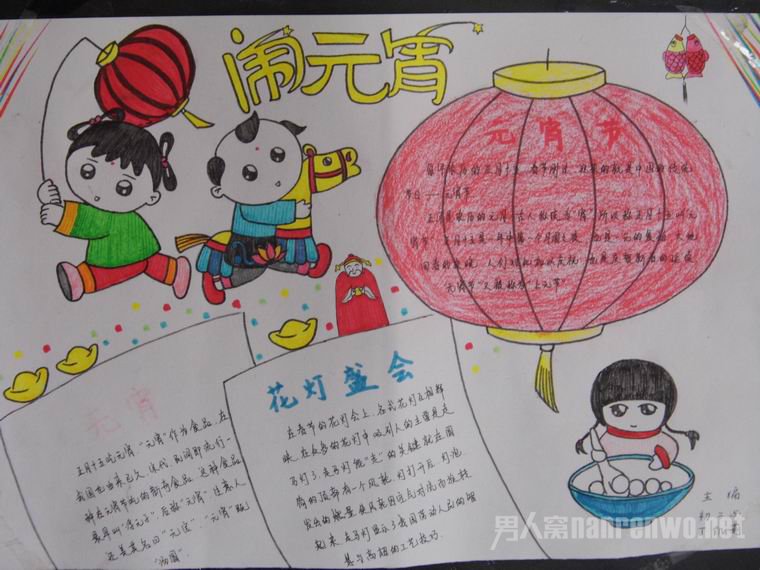 闹元宵
元宵节
每年农历的正月十五,春节刚过,迎来的就是中国的传统
节日——元宵节
正月是农历的元月,古人称夜为"宵"所以称正月十五叫元
宵节。正月十五是一年中第一个月圆之夜,也是一元复始,大地
回春的夜晚,人们对此加以庆祝,也是庆贺新春的延续
元宵节"又被称为"上元节"
元宵
正月十五吃元宵,"元宵"作为食品,在
我国也由来已久。宋代,民间即流行一
种在元宵节吃的新奇食品,这种食品
最早叫"浮元子"后称"元宵",生意人
还美其名曰"元宝"。"元宵"既
"汤圆"
花灯盛会
在春节的花灯会上,各式花灯互相辉
映,在众多的花灯中,吸引人的主要是走
马灯了,走马灯能"走"的关键就在圆
筒的顶部有一个风轮,灯打开后,灯泡
发出的热量,使风轮因近光对流而旋转
起来,走马灯显示了我国劳动人民的智
慧与高超的工艺技巧.
主编
男人窝nanrenwo.net